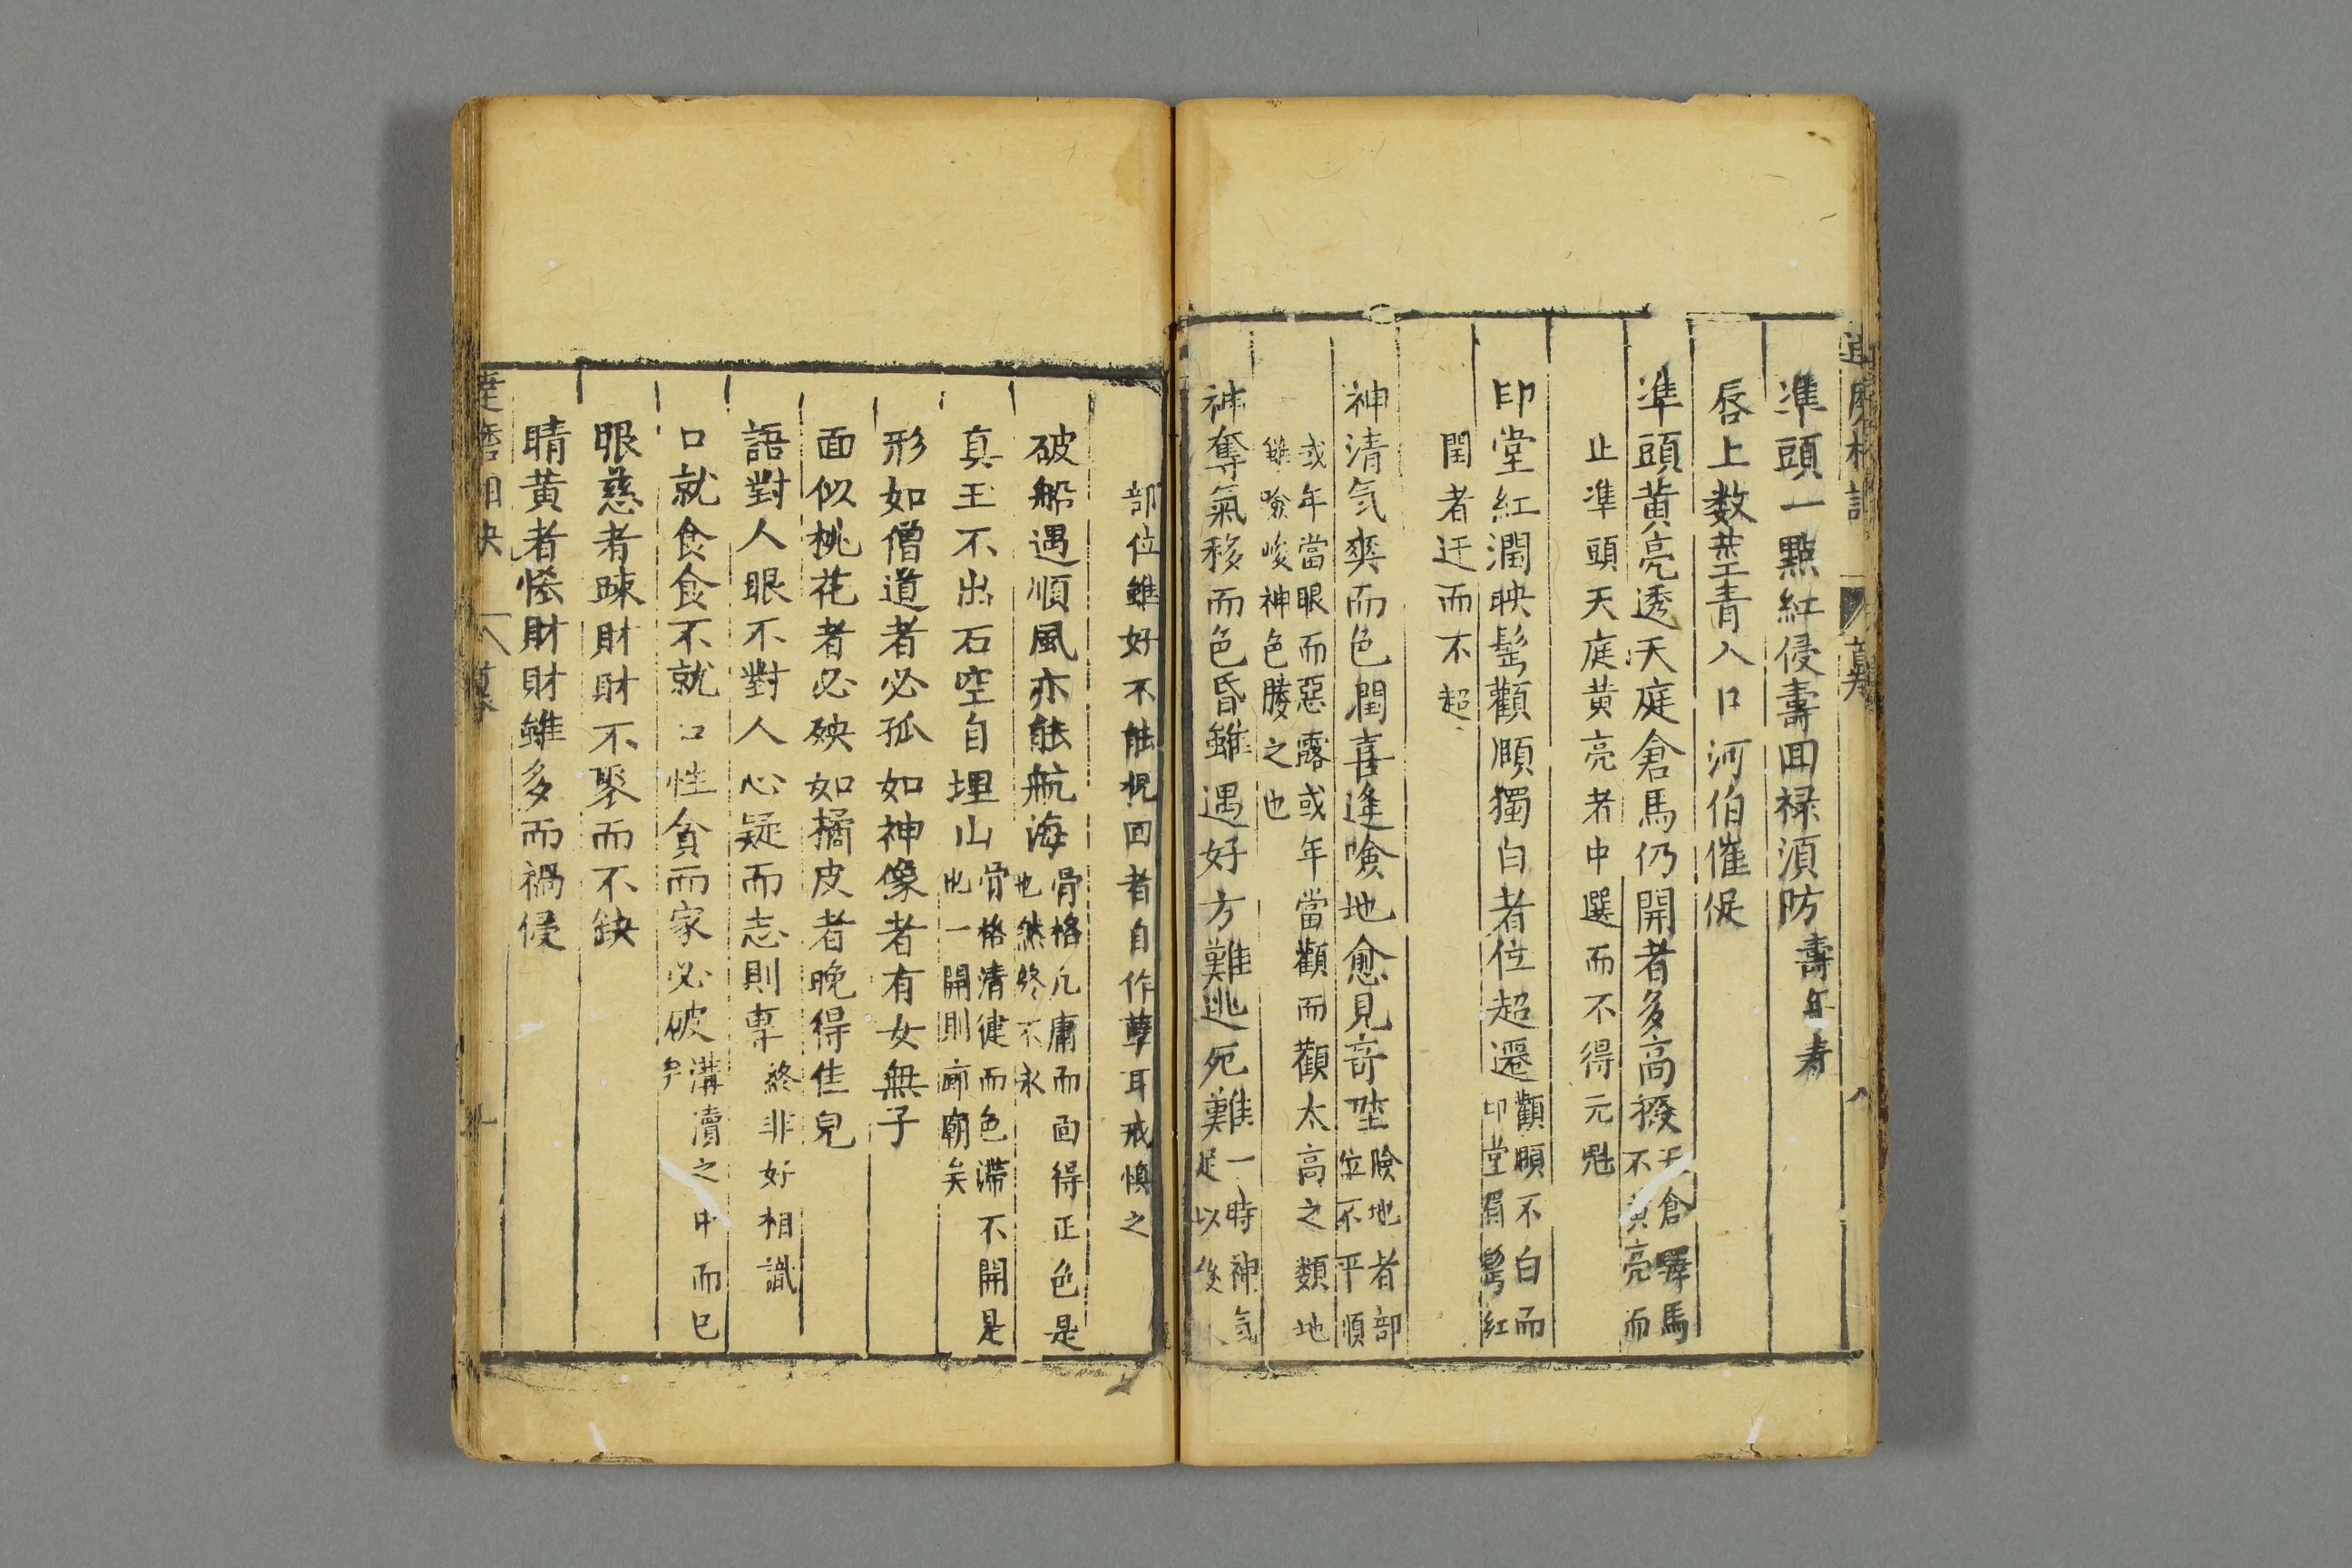 達磨相訣 首卷 八
準頭一點紅侵壽回禄湏防壽年壽
唇上数莖青入口河伯催促
準頭黄亮透天庭倉馬仍開者多高掇天倉驛馬
不黄亮而
止準頭天庭黄亮者中選而不得元魁
印堂紅潤映髩顴頤獨白者位超遷顴頤不白而
印堂眉髩紅
閏者迁而不超
神清気爽而色閏喜逢嶮地愈見竒嶮地者部
位不平順
或年當眼而惡露或年當顴而顴太高之類地
雖嶮峻神色勝之也
神奪氣移而色昏雖遇好方難逃死難一時神気
足以後
部位雖好不能枧回者自作孽耳戒慎之
破船遇順風亦能航海骨格凡庸而面得正色是
也然終不永
真玉不出石空自埋山骨格清健而色滯不開是
也一開則廊廟矣
形如僧道者必孤如神像者有女無子
面似桃花者必殃如橘皮者晚得佳兒
語對人眼不對人心疑而志則專終非好相識
口就食食不就口性貪而家必破溝瀆之中而已
眼慈者踈財財不聚而不缺
睛黄者恡財財雖多而禍侵
達磨相訣 首卷 九